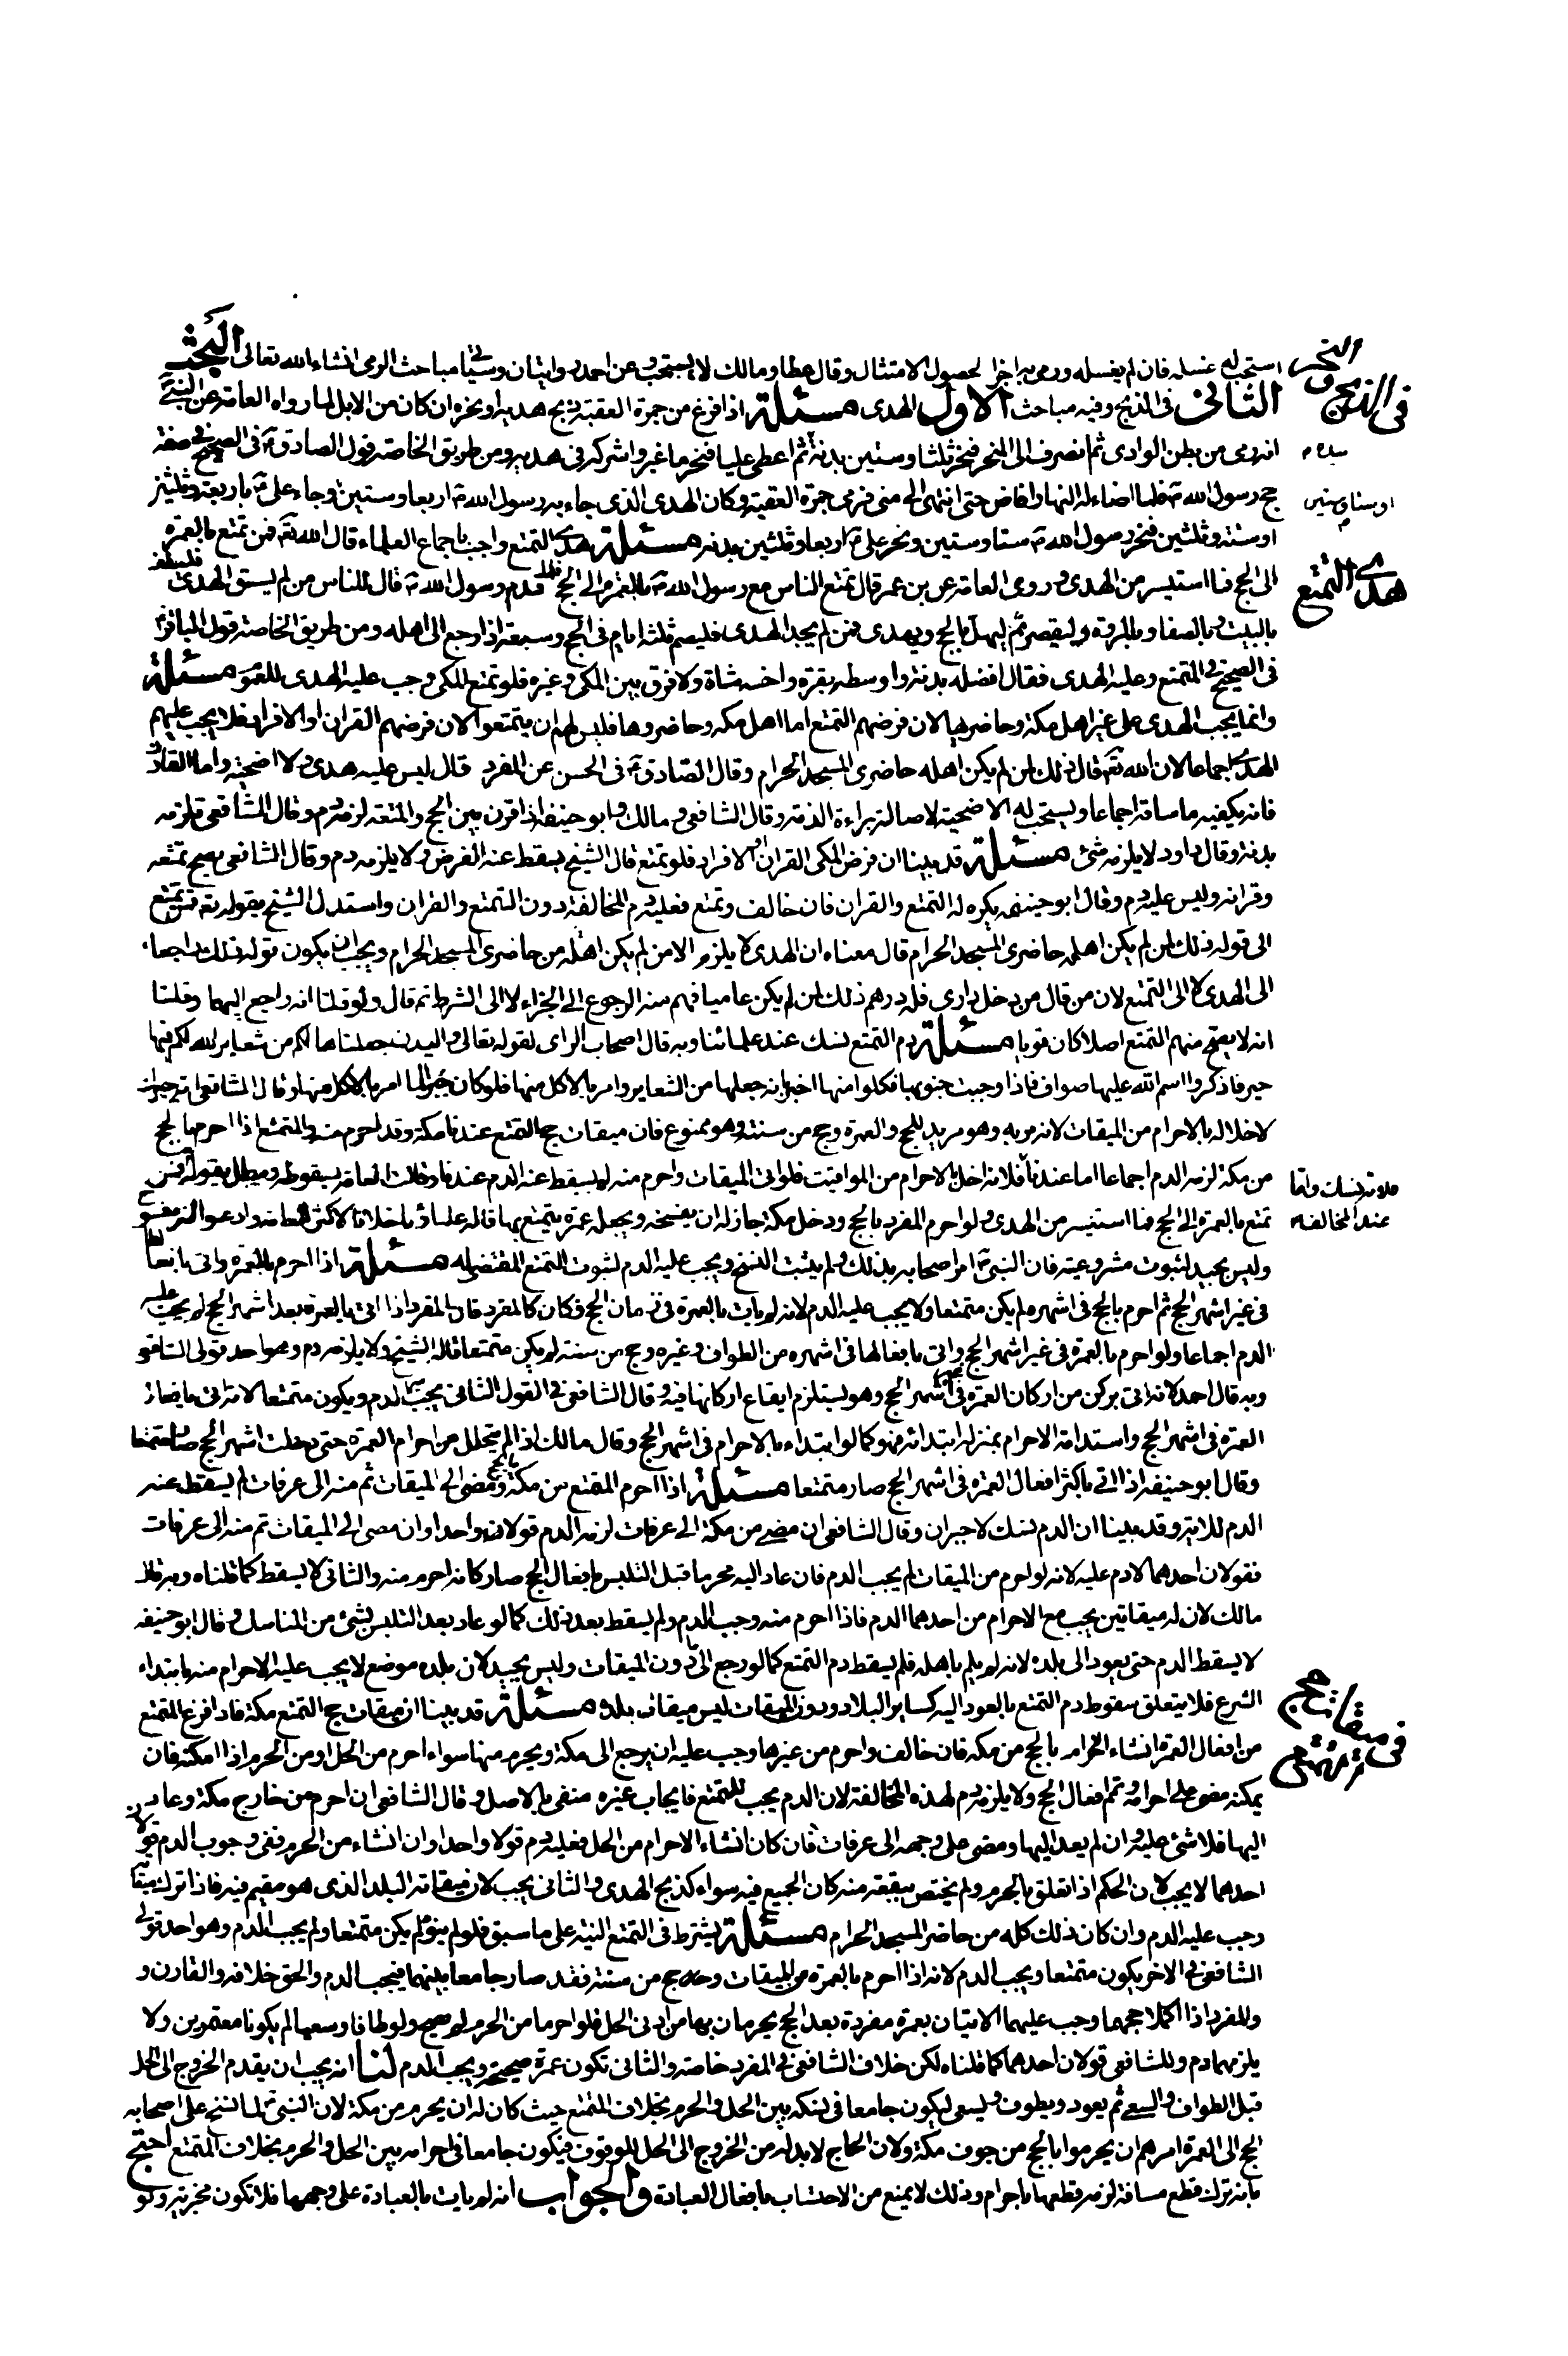 استحب له غسله فان لم يغسله ورمى به اجزا لحصول الامتثال وقال عطا ومالك لا يستحب وعن احمد روايتان وسياتى مباحث الرمى انشاء الله تعالى البحث
الثانى فى الذبح وفيه مباحث الاول الهدى مسئلة اذا فرغ من جمرة العقبة ذبح هديه او نحره ان كان من الابل لما رواه العامة عن النبى ص
انه رمى من بطن الوادى ثم انصرف الى المنحر فنحر ثلثا وستين بدنة ثم اعطى عليا فنحر ما غبر واشركه فى هديه ومن طريق الخاصة قول الصادق ع فى الصحيح فى صفة
حج رسول الله ص فلما اضاء له النهار افاض حتى انتهى الى منى فرمى جمرة العقبة وكان الهدى الذى جاء به رسول الله ص اربعا وستين وجاء على ع باربعة وثلثين
او ستة وثلثين فنحر رسول الله ص ستا وستين ونحر على ع اربعا وثلثين بدنه مسئلة هدى التمتع واجب باجماع العلماء قال الله تعالى فمن تمتع بالعمرة
الى الحج فما استيسر من الهدى وروى العامة عن بن عمر قال تمتع الناس مع رسول الله ص بالعمرة الى الحج فلما قدم رسول الله ص قال للناس من لم يسق الهدى فليطف
بالبيت وبالصفا وبالمروة وليقصر ثم ليهل بالحج ويهدى فمن لم يجد الهدى فليصم ثلثة ايام فى الحج وسبعة اذا رجع الى اهله ومن طريق الخاصة قول الباقر ع
فى الصحيح فى المتمتع وعليه الهدى فقال افضله بدنة واوسطه بقرة واخسه شاة ولا فرق بين المكى وغيره فلو تمتع المكى وجب عليه الهدى للعموم مسئلة
وانما يجب الهدى على غير اهل مكة وحاضريها لان فرضهم التمتع اما اهل مكه وحاضروها فليس لهم ان يتمتعوا لان فرضهم القران او الافراد فلا يجب عليهم
الهدى اجماعا لان الله تعالى قال ذلك لمن لم يكن اهله حاضرى المسجد الحرام وقال الصادق ع فى الحسن عن المفرد قال ليس عليه هدى ولا اضحية واما القارن
فانه يكفيه ما ساقه اجماعا ويستحب له الاضحية لاصالة براءة الذمة وقال الشافعى ومالك وابو حنيفة اذا قرن بين الحج والمتعه لزمه دم وقال الشافعى تلزمه
بدنة وقال داود لا يلزمه شئ مسئلة قد بينا ان فرض المكى القران او الافراد فلو تمتع قال الشيخ يسقط عنه الفرض ولا يلزمه دم وقال الشافعى يصح تمتعه
وقرانه وليس عليه دم وقال ابو حنيفه يكره له التمتع والقران فان خالف وتمتع فعليه دم المخالفة دون التمتع والقران واستدل الشيخ بقوله تعالى فمن تمتع
الى قوله ذلك لمن لم يكن اهله حاضرى المسجد الحرام قال معناه ان الهدى لا يلزم الا من لم يكن اهله من حاضرى المسجد الحرام ويجب ان يكون قوله ذلك راجعا
الى الهدى لا الى التمتع لان من قال من دخل دارى فله درهم ذلك لمن لم يكن عاميا فهم منه الرجوع الى الجزاء لا الى الشرط ثم قال ولو قلنا انه راجع اليهما وقلنا
انه لا يصح منهم التمتع اصلا كان قويا مسئلة دم التمتع نسك عند علمائنا وبه قال اصحاب الراى لقوله تعالى والبدن جعلناها لكم من شعاير الله لكم فيها
خير فاذكروا اسم الله عليها صواف فاذا وجبت جنوبها فكلوا منها اخبر بانه جعلها من الشعاير وامر بالاكل منها فلو كان جبرانا لما امر بالاكل منها وقال الشافعى انه جبران
لاخلاله بالاحرام من الميقات لانه مر به وهو مريد للحج والعمرة وحج من سنته وهو ممنوع فان ميقات حج التمتع عندنا مكة وقد احرم منه والمتمتع اذا احرم بالحج
من مكة لزمه الدم اجماعا اما عندنا فلانه نسك واما عند المخالف فلانه اخل بالاحرام من المواقيت فلو اتى الميقات واحرم منه لم يسقط عنه الدم عندنا وقالت العامة بسقوطه ويبطل بقوله فمن
تمتع بالعمرة الى الحج فما استيسر من الهدى ولو احرم المفرد بالحج ودخل مكة جاز له ان يفسخه ويجعله عمرة يتمتع بها قاله علماؤنا خلافا لاكثر العامة وادعوا انه منسوخ
وليس بجيد لثبوت مشروعيته فان النبى ص امر اصحابه بذلك ولم يثبت النسخ ويجب عليه الدم لثبوت التمتع المقتضى له مسئلة اذا احرم بالعمرة واتى بافعالها
فى غير اشهر الحج ثم احرم بالحج فى اشهره لم يكن متمتعا ولا يجب عليه الدم لانه لم يات بالعمرة فى زمان الحج فكان كالمفرد فان المفرد اذا اتى بالعمرة بعد اشهر الحج لم يجب عليه
الدم اجماعا ولو احرم بالعمرة فى غير اشهر الحج واتى بافعالها فى اشهره من الطواف وغيره وحج من سنته لم يكن متمتعا قاله الشيخ ولا يلزمه دم وهو احد قولى الشافعى
وبه قال احمد لانه اتى بركن من اركان العمرة فى غير اشهر الحج وهو يستلزم ايقاع اركانها فيه وقال الشافعى فى القول الثانى يجب عليه الدم ويكون متمتعا لانه اتى بافعال
العمرة فى اشهر الحج واستدامة الاحرام بمنزلة ابتدائه فهو كما لو ابتداء بالاحرام فى اشهر الحج وقال مالك اذا لم يتحلل من احرام العمرة حتى دخلت اشهر الحج صار متمتعا
وقال ابو حنيفة اذا اتى باكثر افعال العمرة فى اشهر الحج صار متمتعا مسئلة اذا احرم المتمتع من مكة بالحج ومضى الى الميقات ثم منه الى عرفات لم يسقط عنه
الدم للاية وقد بينا ان الدم نسك لا جبران وقال الشافعى ان مضى من مكة الى عرفات لزمه الدم قولا واحدا وان مضى الى الميقات ثم منه الى عرفات
فقولان احدهما لا دم عليه لانه لو احرم من الميقات لم يجب الدم فان عاد اليه محرما قبل التلبس بافعال الحج صار كانه احرم منه والثانى لا يسقط كما قلناه وبه قال
مالك لان له ميقاتين يجب مع الاحرام من احدهما الدم فاذا احرم منه وجب الدم ولم يسقط بعد ذلك كما لو عاد بعد التلبس بشئ من المناسك وقال ابو حنيفه
لا يسقط الدم حتى يعود الى بلده لانه لم يلم باهله فلم يسقط دم التمتع كما لو رجع الى دون الميقات وليس بجيد لان بلده موضع لا يجب عليه الاحرام منه بابتداء
الشرع فلا يتعلق سقوط دم التمتع بالعود اليه كساير البلاد ودون الميقات ليس ميقات بلده مسئلة قد بينا ان ميقات حج التمتع مكة فاذا فرغ المتمتع
من افعال العمرة انشاء احرامه بالحج من مكه فان خالف واحرم من غيرها وجب عليه ان يرجع الى مكة ويحرم منها سواء احرم من الحل او من الحرم اذا امكنه فان
لم يمكنه مضى على احرامه وتمم افعال الحج ولا يلزمه دم لهذه المخالفة لان الدم يجب للتمتع فايجاب غيره منفى بالاصل وقال الشافعى ان احرم من خارج مكة وعاد
اليها فلا شئ عليه وان لم يعد اليها ومضى على وجهه الى عرفات فان كان انشاء الاحرام من الحل فعليه دم قولا واحدا وان انشاء من الحرم ففى وجوب الدم قولان
احدهما لا يجب لان الحكم اذا تعلق بالحرم ولم يختص ببقعة منه كان الجميع فيه سواء كذبح الهدى والثانى يجب لان ميقاته البلد الذى هو مقيم فيه فاذا ترك ميقاته
وجب عليه الدم وان كان ذلك كله من حاضر المسجد الحرام مسئلة يشترط فى التمتع النية على ما سبق فلو لم ينوه لم يكن متمتعا ولم يجب الدم وهو احد قولى
الشافعى وفى الاخر يكون متمتعا ويجب الدم لانه اذا احرم بالعمرة من الميقات وحج من سنته فقد صار جامعا بينهما فيجب الدم والحق خلافه والقارن و
المفرد اذا اكملا حجهما وجب عليهما الاتيان بعمرة مفردة بعد الحج يحرمان بها من ادنى الحل فلو احرما من الحرم لم يصح ولو طافا وسعيا لم يكونا معتمرين ولا
يلزمهما دم وللشافعى قولان احدهما كما قلناه لكن خلاف الشافعى فى المفرد خاصة والثانى تكون عمرة صحيحة ويجب الدم لنا انه يجب ان يقدم الخروج الى الحل
قبل الطواف والسعى ثم يعود ويطوف ويسعى ليكون جامعا فى نسكه بين الحل والحرم بخلاف المتمتع حيث كان له ان يحرم من مكة لان النبى ص لما فسخ على اصحابه
الحج الى العمرة امرهم ان يحرموا بالحج من جوف مكة ولان الحاج لابد له من الخروج الى الحل للوقوف فيكون جامعا فى احرامه بين الحل والحرم بخلاف المتمتع احتج
بانه ترك قطع مسافة لزمه قطعها باحرام وذلك لا يمنع من الاحتساب بافعال العبادة والجواب انه لم يات بالعبادة على وجهها فلا تكون مجزية ولو
فى الذبح والنحر
بيده م
او ستا وستين
هدى التمتع
فلانه نسك واما
عند المخالف
فى ميقات حج